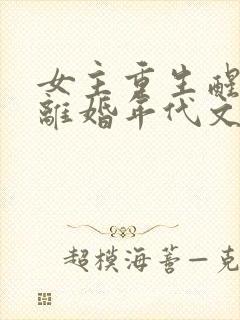 女主重生醒
離婚年代文
超模海蒂—克